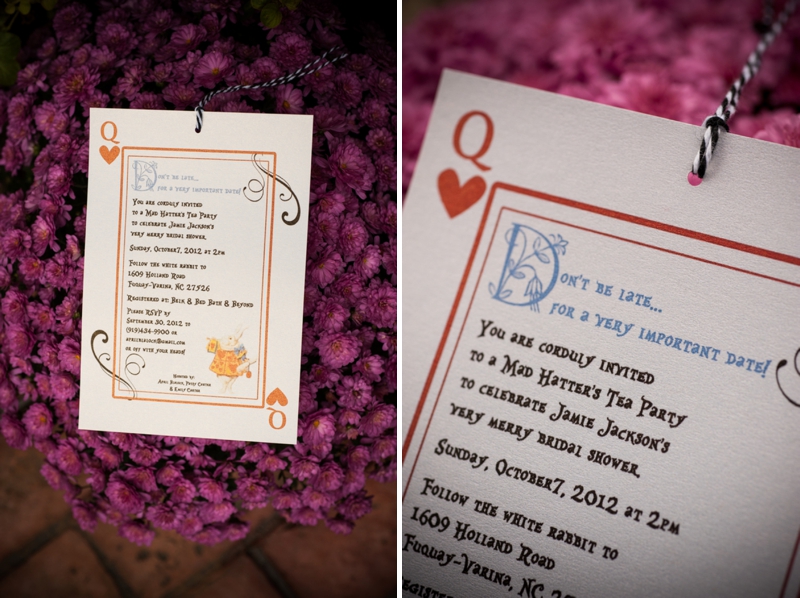 Q
Don't be late...
for a very important date!
You are cordially invited
to a Mad Hatter's Tea Party
to celebrate Jamie Jackson's
very merry bridal shower.
Sunday, October7, 2012 at 2pm
Follow the white rabbit to
1609 Holland Road
Fuquay-Varina, NC 27526
Registered at: Belk & Bed Bath & Beyond
Please RSVP by
September 30, 2012 to
(919)434-9900 or
or off with your head!
Hosted by:
Q
Q
Don't be late...
for a very important date!
You are cordially invited
to a Mad Hatter's Tea Party
to celebrate Jamie Jackson's
very merry bridal shower.
Sunday, October7, 2012 at 2pm
Follow the white rabbit to
1609 Holland Road
Fuquay-Varina, NC 27